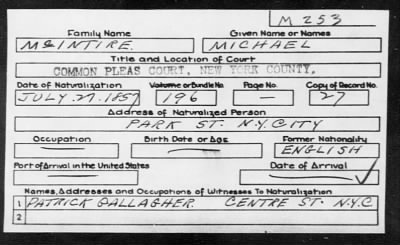 M 253
Family Name Given Name or Names
McINTIRE. MICHAEL
Title and Location of Court
COMMON PLEAS COURT, NEW YORK COUNTY,
Date of Naturalization Volume or Bundle No. Page No. Copy of Record No.
JULY. 27. 1857 196 — 27
Address of Naturalized Person
PARK ST. N.Y. CITY
Occupation Birth Date or Age Former Nationality
— — ENGLISH
Port of Arrival in the United States Date of Arrival
— —
Names, Addresses and Occupations of Witnesses To Naturalization
1 PATRICK GALLAGHER. CENTRE ST. N.Y.C.
2